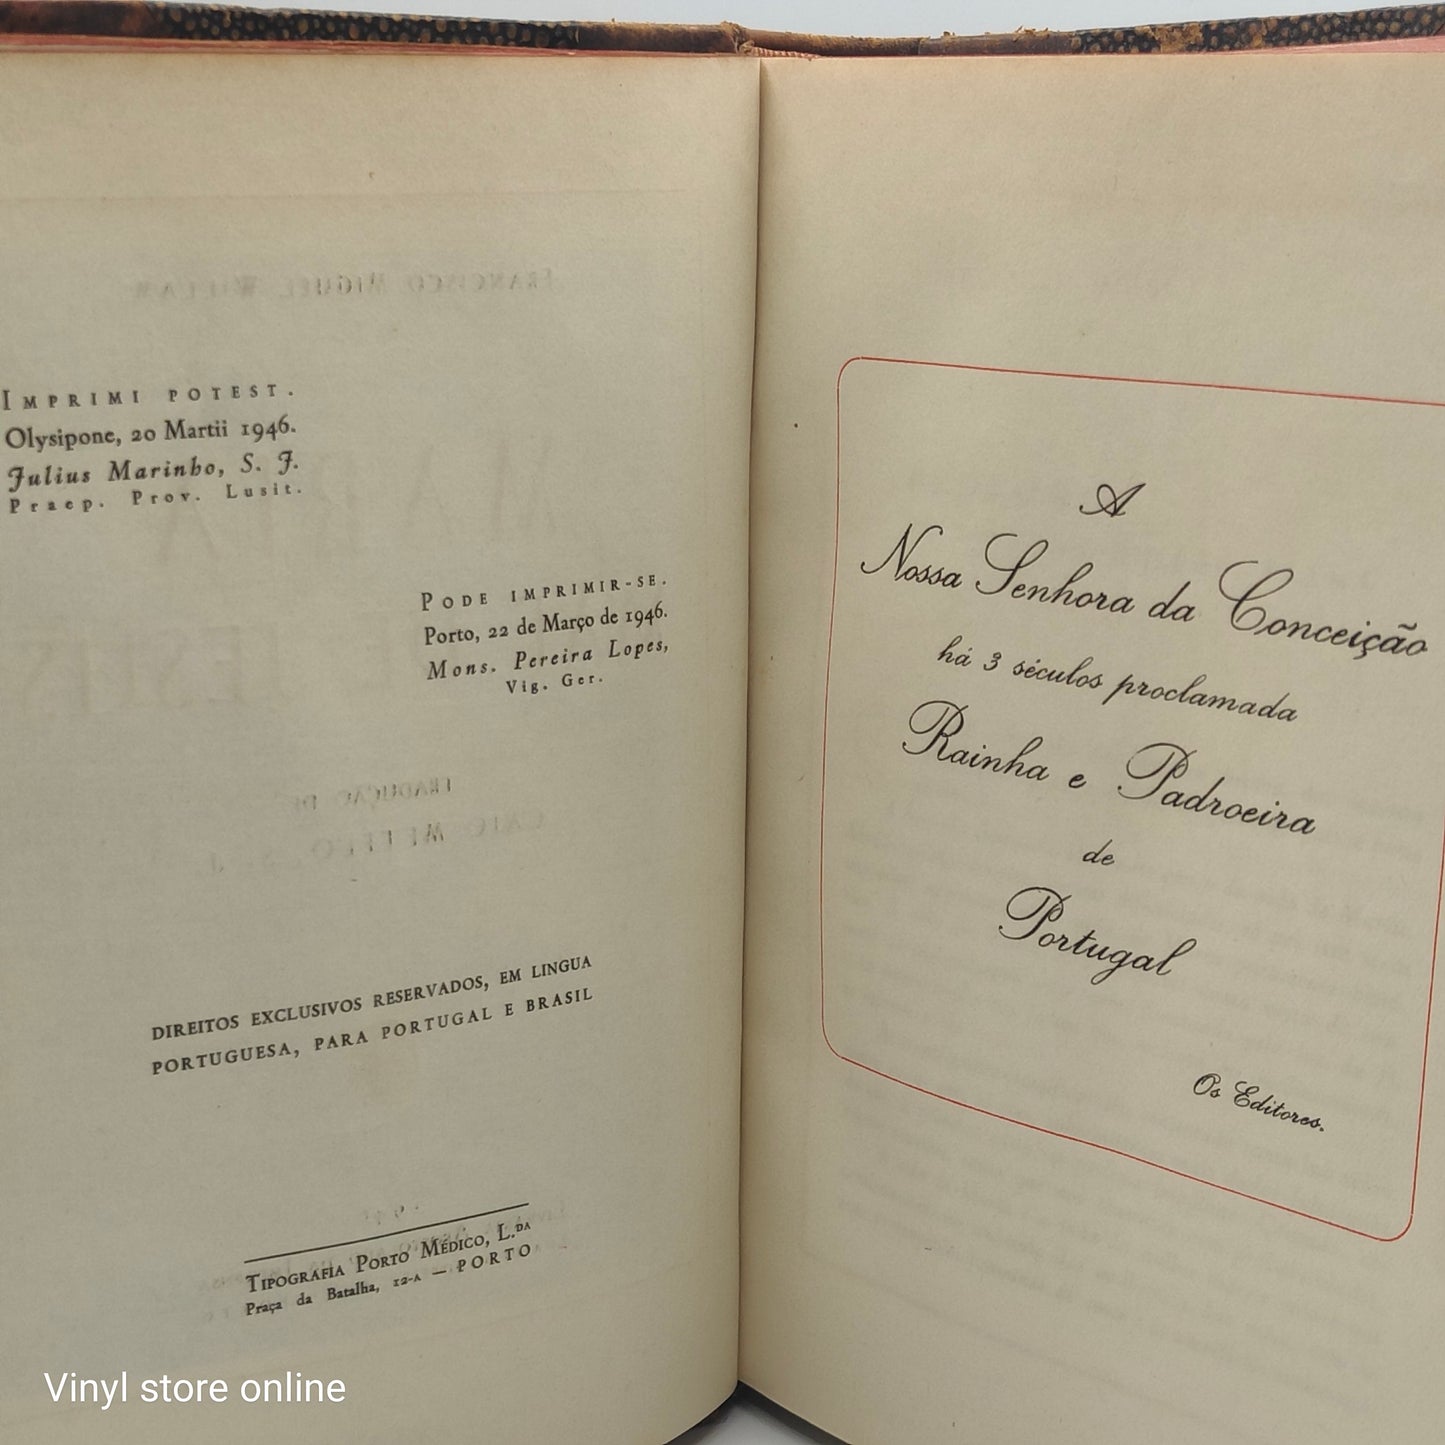 IMPRIMI POTEST.
Olysipone, 20 Martii 1946.
Julius Marinho, S. J.
Praep. Prov. Lusit.
PODE IMPRIMIR-SE.
Porto, 22 de Março de 1946.
Mons. Pereira Lopes,
Vig. Ger.
DIREITOS EXCLUSIVOS RESERVADOS, EM LINGUA
PORTUGUESA, PARA PORTUGAL E BRASIL
TIPOGRAFIA PORTO MÉDICO, L.DA
Praça da Batalha, 12-A — PORTO
A
Nossa Senhora da Conceição
há 3 séculos proclamada
Rainha e Padroeira
de
Portugal
Os Editores.
Vinyl store online